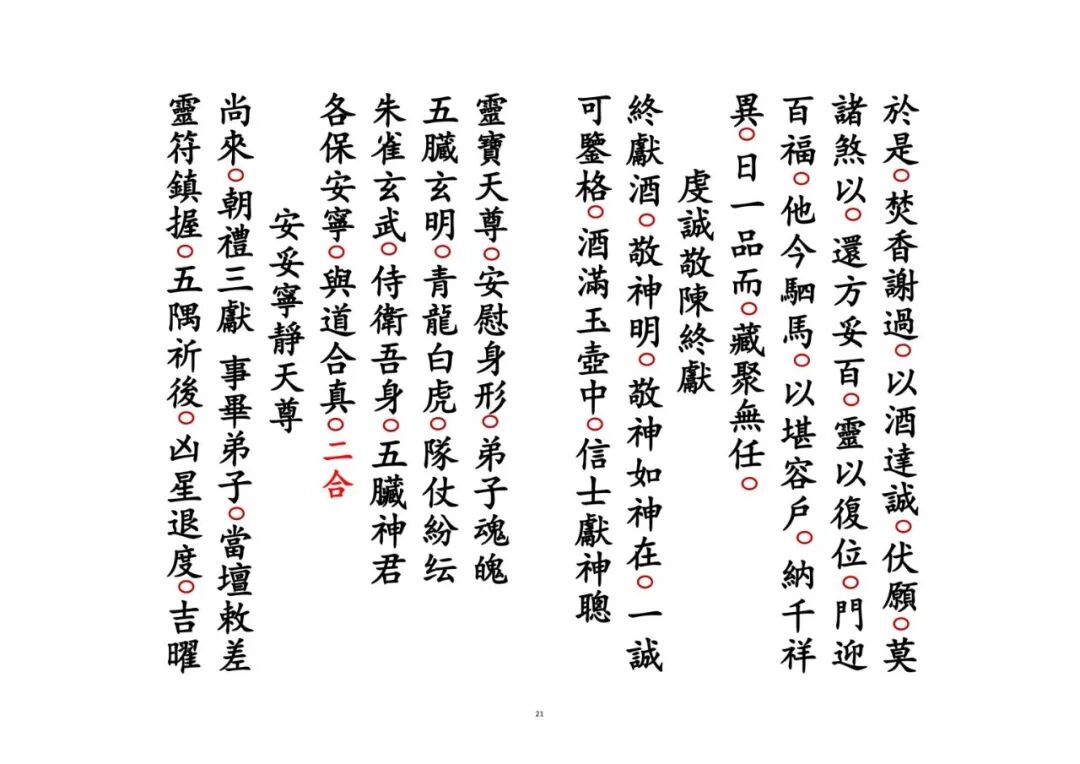 於是○焚香謝過○以酒達誠○伏願○莫
諸煞以○還方妥百○靈以復位○門迎
百福○他今駟馬○以堪容戶○納千祥
異○日一品而○藏聚無任○
虔誠敬陳終獻
終獻酒○敬神明○敬神如神在○一誠
可鑒格○酒滿玉壺中○信士獻神聰
靈寶天尊○安慰身形○弟子魂魄
五臟玄明○青龍白虎○隊仗紛纭
朱雀玄武○侍衛吾身○五臟神君
各保安寧○與道合真○二合
安妥寧靜天尊
尚來○朝禮三獻 事畢弟子○當壇敕差
靈符鎮握○五隅祈後○凶星退度○吉曜
21